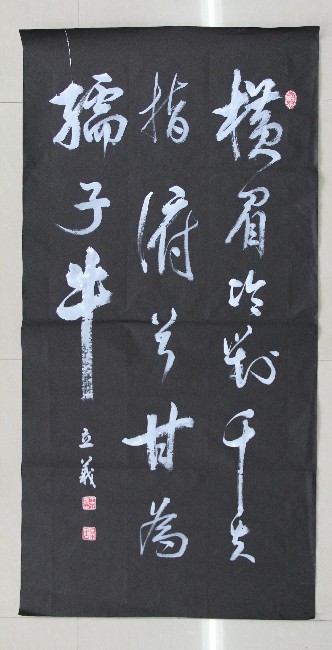 横眉冷對千夫
指俯首甘為
孺子牛
立義